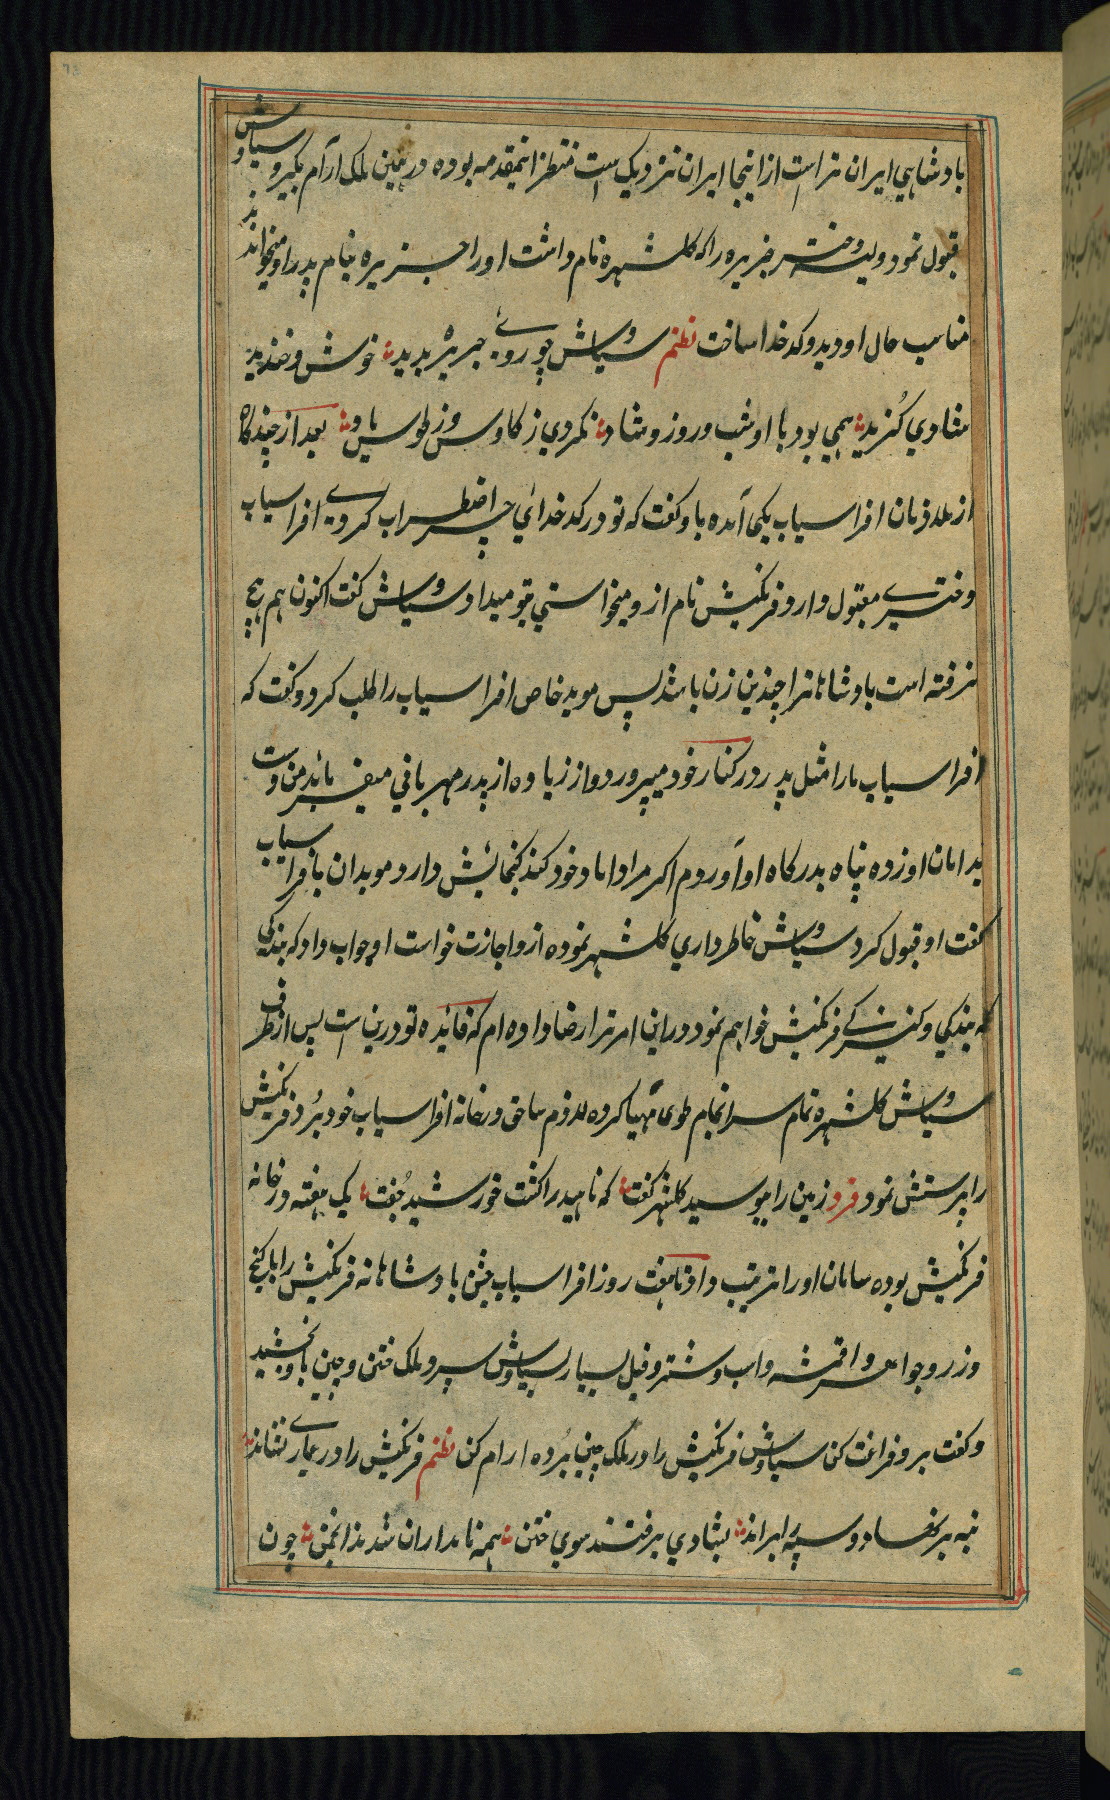 بادشاهي ایران تراست از اینجا ایران نزدیک است منتظر اینمقدمه بوده درهمین ملک آرام بگیر و سیاوش
قبول نمود ولیسه دختر جزیره را که کلشهره نام داشت اورا جزیره بنام پدر او میخواندند
مناسب حال او دید و کدخدا ساخت نظم سیاوش چو روے جریره بدید خوش و خندید
بشادي گزید همي بود با او شب و روز و شاد نکردي ز کاوس وز طوس یاد بعد از چند گاه
فرمان افراسیاب یکی آمده باو گفت که تو در کدخدائي چرا اضطراب کردے افراسیاب
دخترے مقبول دارد فرنکیش نام از و میخواستي بتو میداد سیاوش گفت اکنون هم هیچ
نرفته است بادشاهانرا چندین زن باشد پس موبد خاص افراسیاب را طلب کرد و گفت که
افراسیاب مارا مثل پدر در کنار خود میپرورد و از زیاده از پدر مهرباني میفرماید من دست
بدامان او زده پناه بدرکاه او آوردم اکر مرا داماد خود کند کنجائش دارد موبدان بافراسیاب
گفت او قبول کرد سیاوش خاطرداري کلشهر نموده ازو اجازت خواست او جواب داد که بندگی
که بندکي و کنیزکے فرنکیش خواهم نمود درین امر ترا رضا داده ام که فائده تو درین است پس از طرف
سیاوش کلشهره تمام سرانجام طوی مهیا کرده در خانه افراسیاب خود برد فرنکیش
را پرستش نمود فرد زمین را ببوسید کلشهر گفت که ناهید را گشت خورشید جفت یک هفته در خانه
فرنکیش بوده سامان اورا ترتیب داد تا هفت روز افراسیاب جشن بادشاهانه فرنکیش را با گنج
و زر و جواهر و اقمشه و اسب و شتر و فیل بسیار بسیاوش سپرد ملک ختن و چین باو بخشید
و گفت برو فراغت کن سیاوش فرنکیش را در ملک چین برده ارام کن نظم فرنکیش را در عماری نشاند
بنه بر نهاد و سپه را براند بشادي برفتند سوي ختن همه نامداران شدند انجمن چون